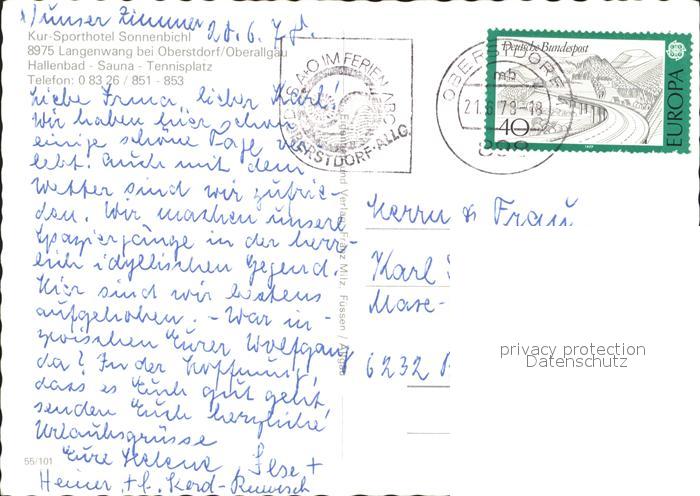 x) unser Zimmer 20.6.78.
Kur-Sporthotel Sonnenbichl
8975 Langenwang bei Oberstdorf/Oberallgäu
Hallenbad - Sauna - Tennisplatz
Telefon: 0 83 26 / 851 - 853
Deutsche Bundespost
40
EUROPA
OBERSTDORF
mb
21.6.78-18
898
IM FERIEN
OBERSTDORF-ALLG.
Liebe Irma, lieber Karl!
Wir haben hier schon
einige schöne Tage ver-
lebt. Auch mit dem
Wetter sind wir zufrie-
den. Wir machen unsere
Spaziergänge in der herr-
lich idyllischen Gegend.
Hier sind wir bestens
aufgehoben. - War in-
zwischen Eurer Wolfgang
da? In der Hoffnung,
dass es Euch gut geht,
senden Euch herzliche
Urlaubsgrüsse
Eure Helena Ilse +
Heiner
55/101
und Verlag Franz Milz, Füssen / Allgäu
Herrn & Frau
Karl
6232
privacy protection
Datenschutz